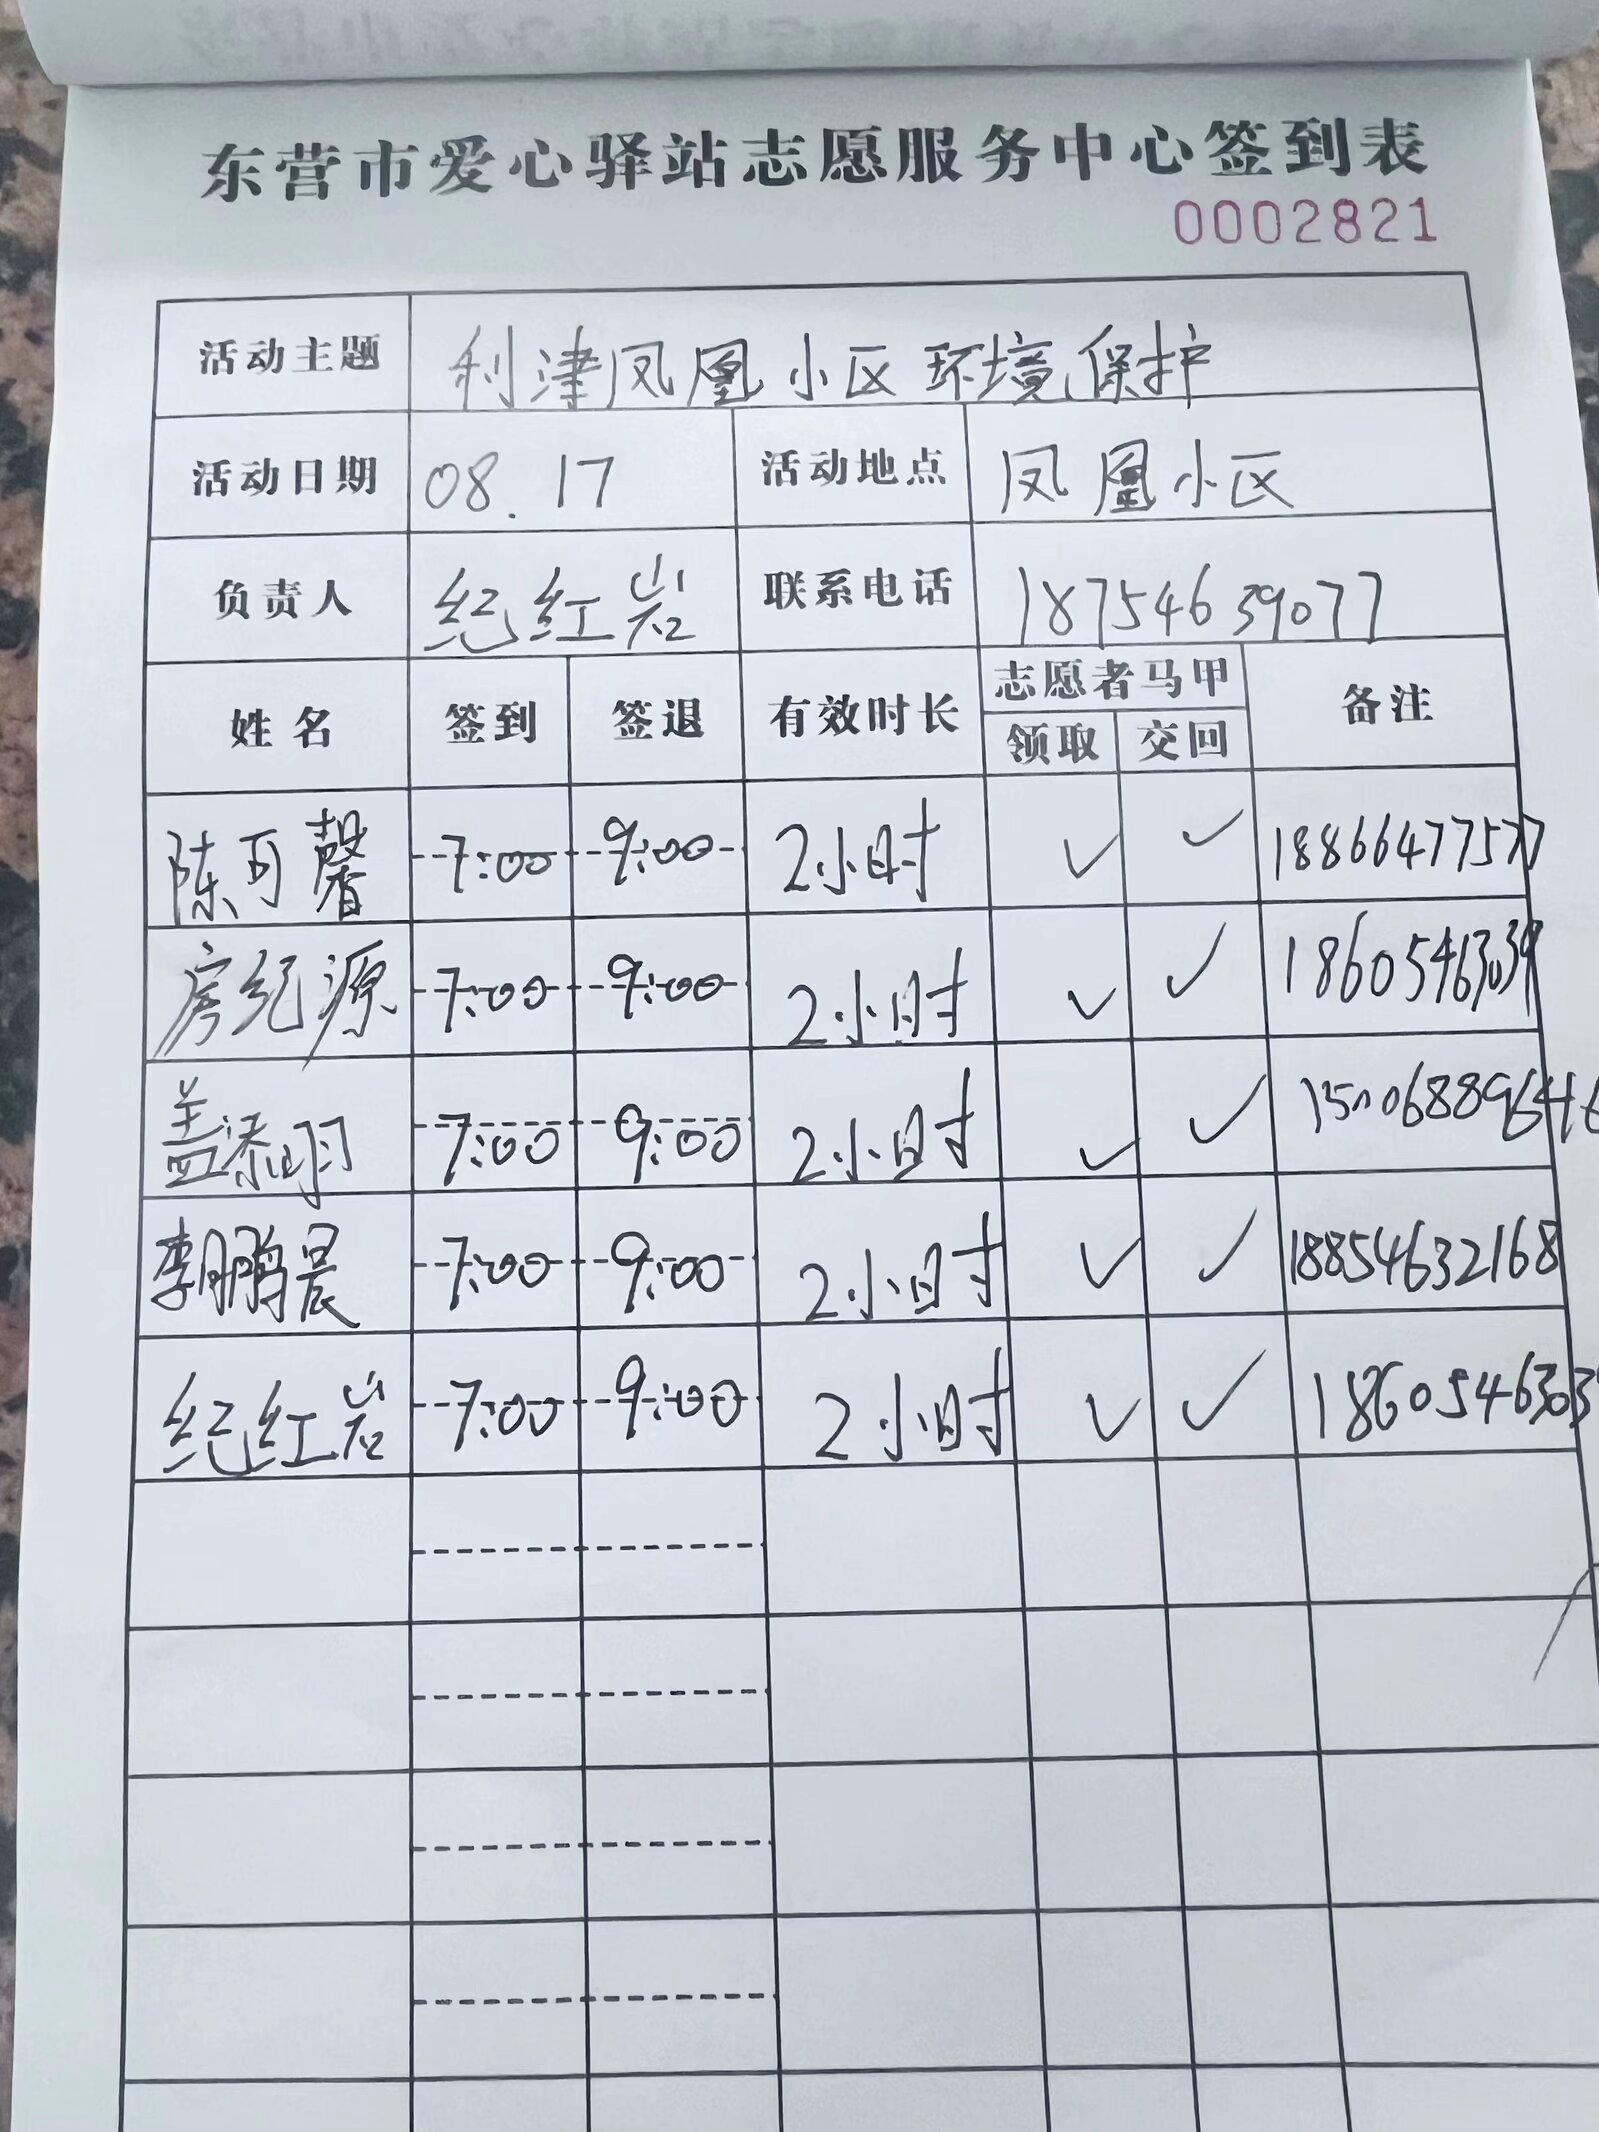 东营市爱心驿站志愿服务中心签到表
0002821
活动主题 利津凤凰小区环境保护
活动日期 08.17 活动地点 凤凰小区
负责人 纪红岩 联系电话 18754639077
姓名 签到 签退 有效时长 志愿者马甲 备注
领取 交回
陈可馨 7:00 9:00 2小时 ✓ ✓ 18866477577
房纪源 7:00 9:00 2小时 ✓ ✓ 18605463039
盖添羽 7:00 9:00 2小时 ✓ ✓
李鹏晨 7:00 9:00 2小时 ✓ ✓ 18854632168
纪红岩 7:00 9:00 2小时 ✓ ✓